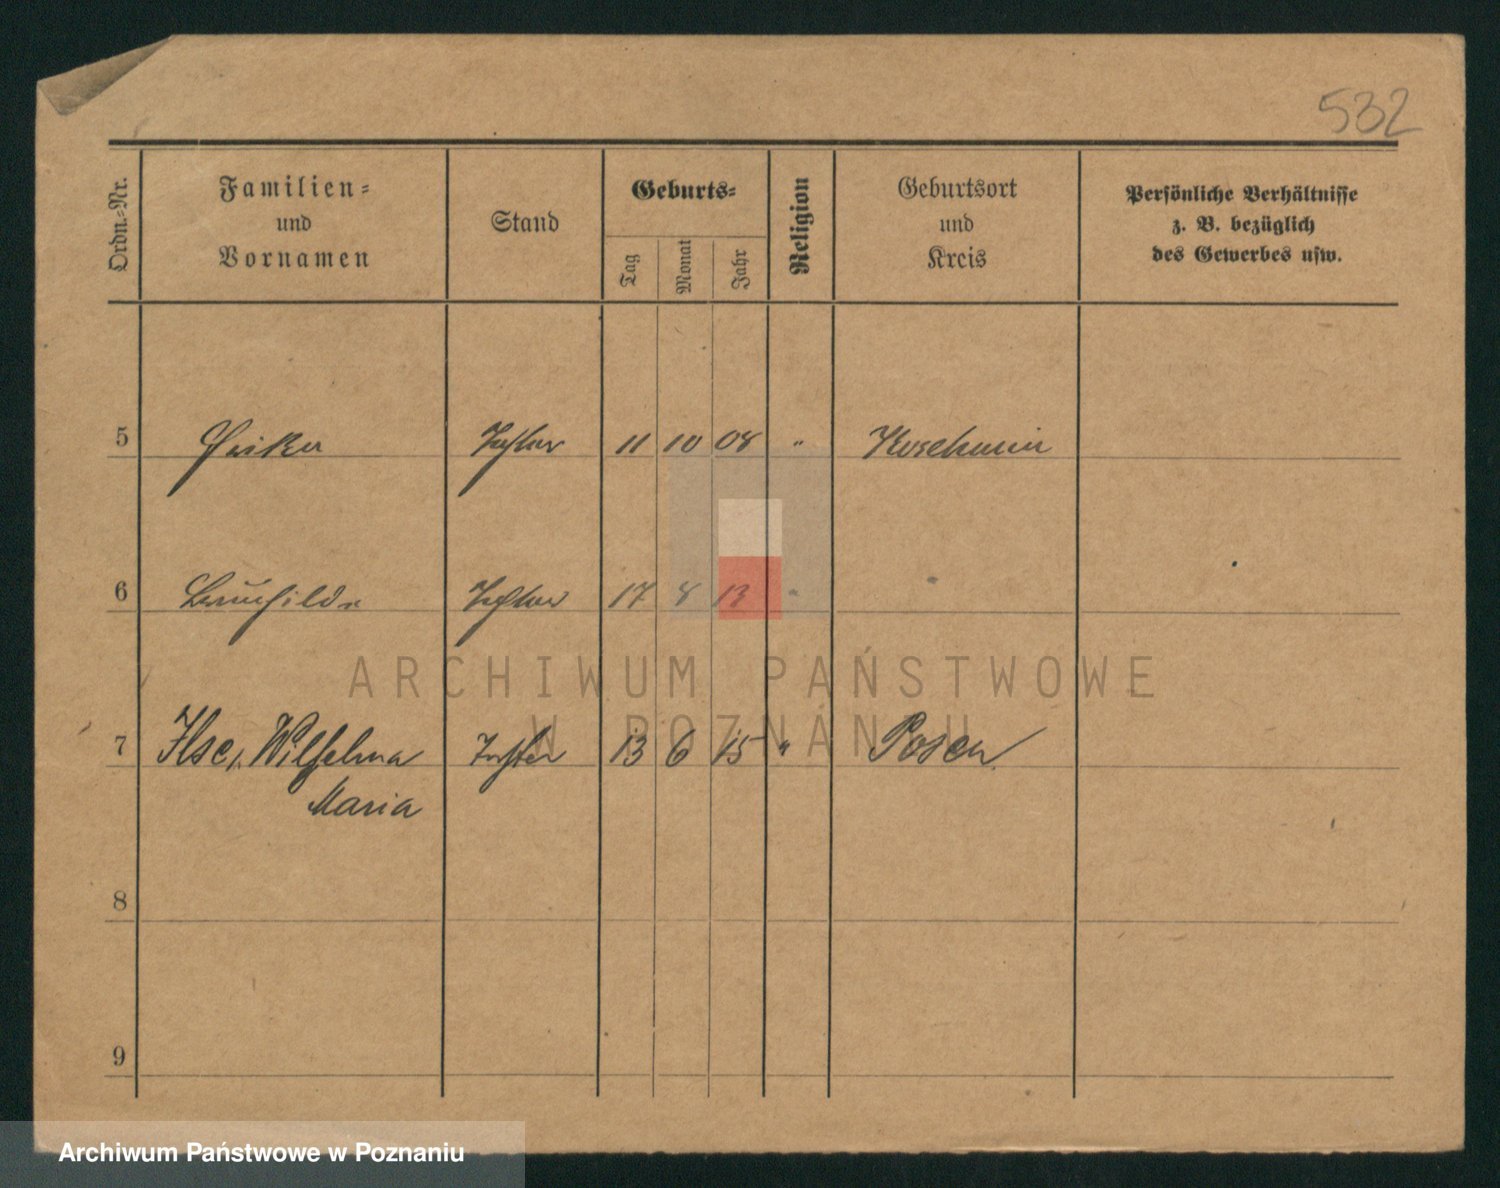 532
Ordn.-Nr.
Familien-
und
Vornamen
Stand
Geburts-
Tag
Monat
Jahr
Religion
Geburtsort
und
Kreis
Persönliche Verhältnisse
z. B. bezüglich
des Gewerbes usw.
5 Tochter 11 10 08 " Koschmin
6 Brunhilde Tochter 17 8 13 "
7 Ilse, Wilhelma Tochter 13 6 15 " Posen
Maria
8
9
ARCHIWUM PAŃSTWOWE
W POZNANIU
Archiwum Państwowe w Poznaniu